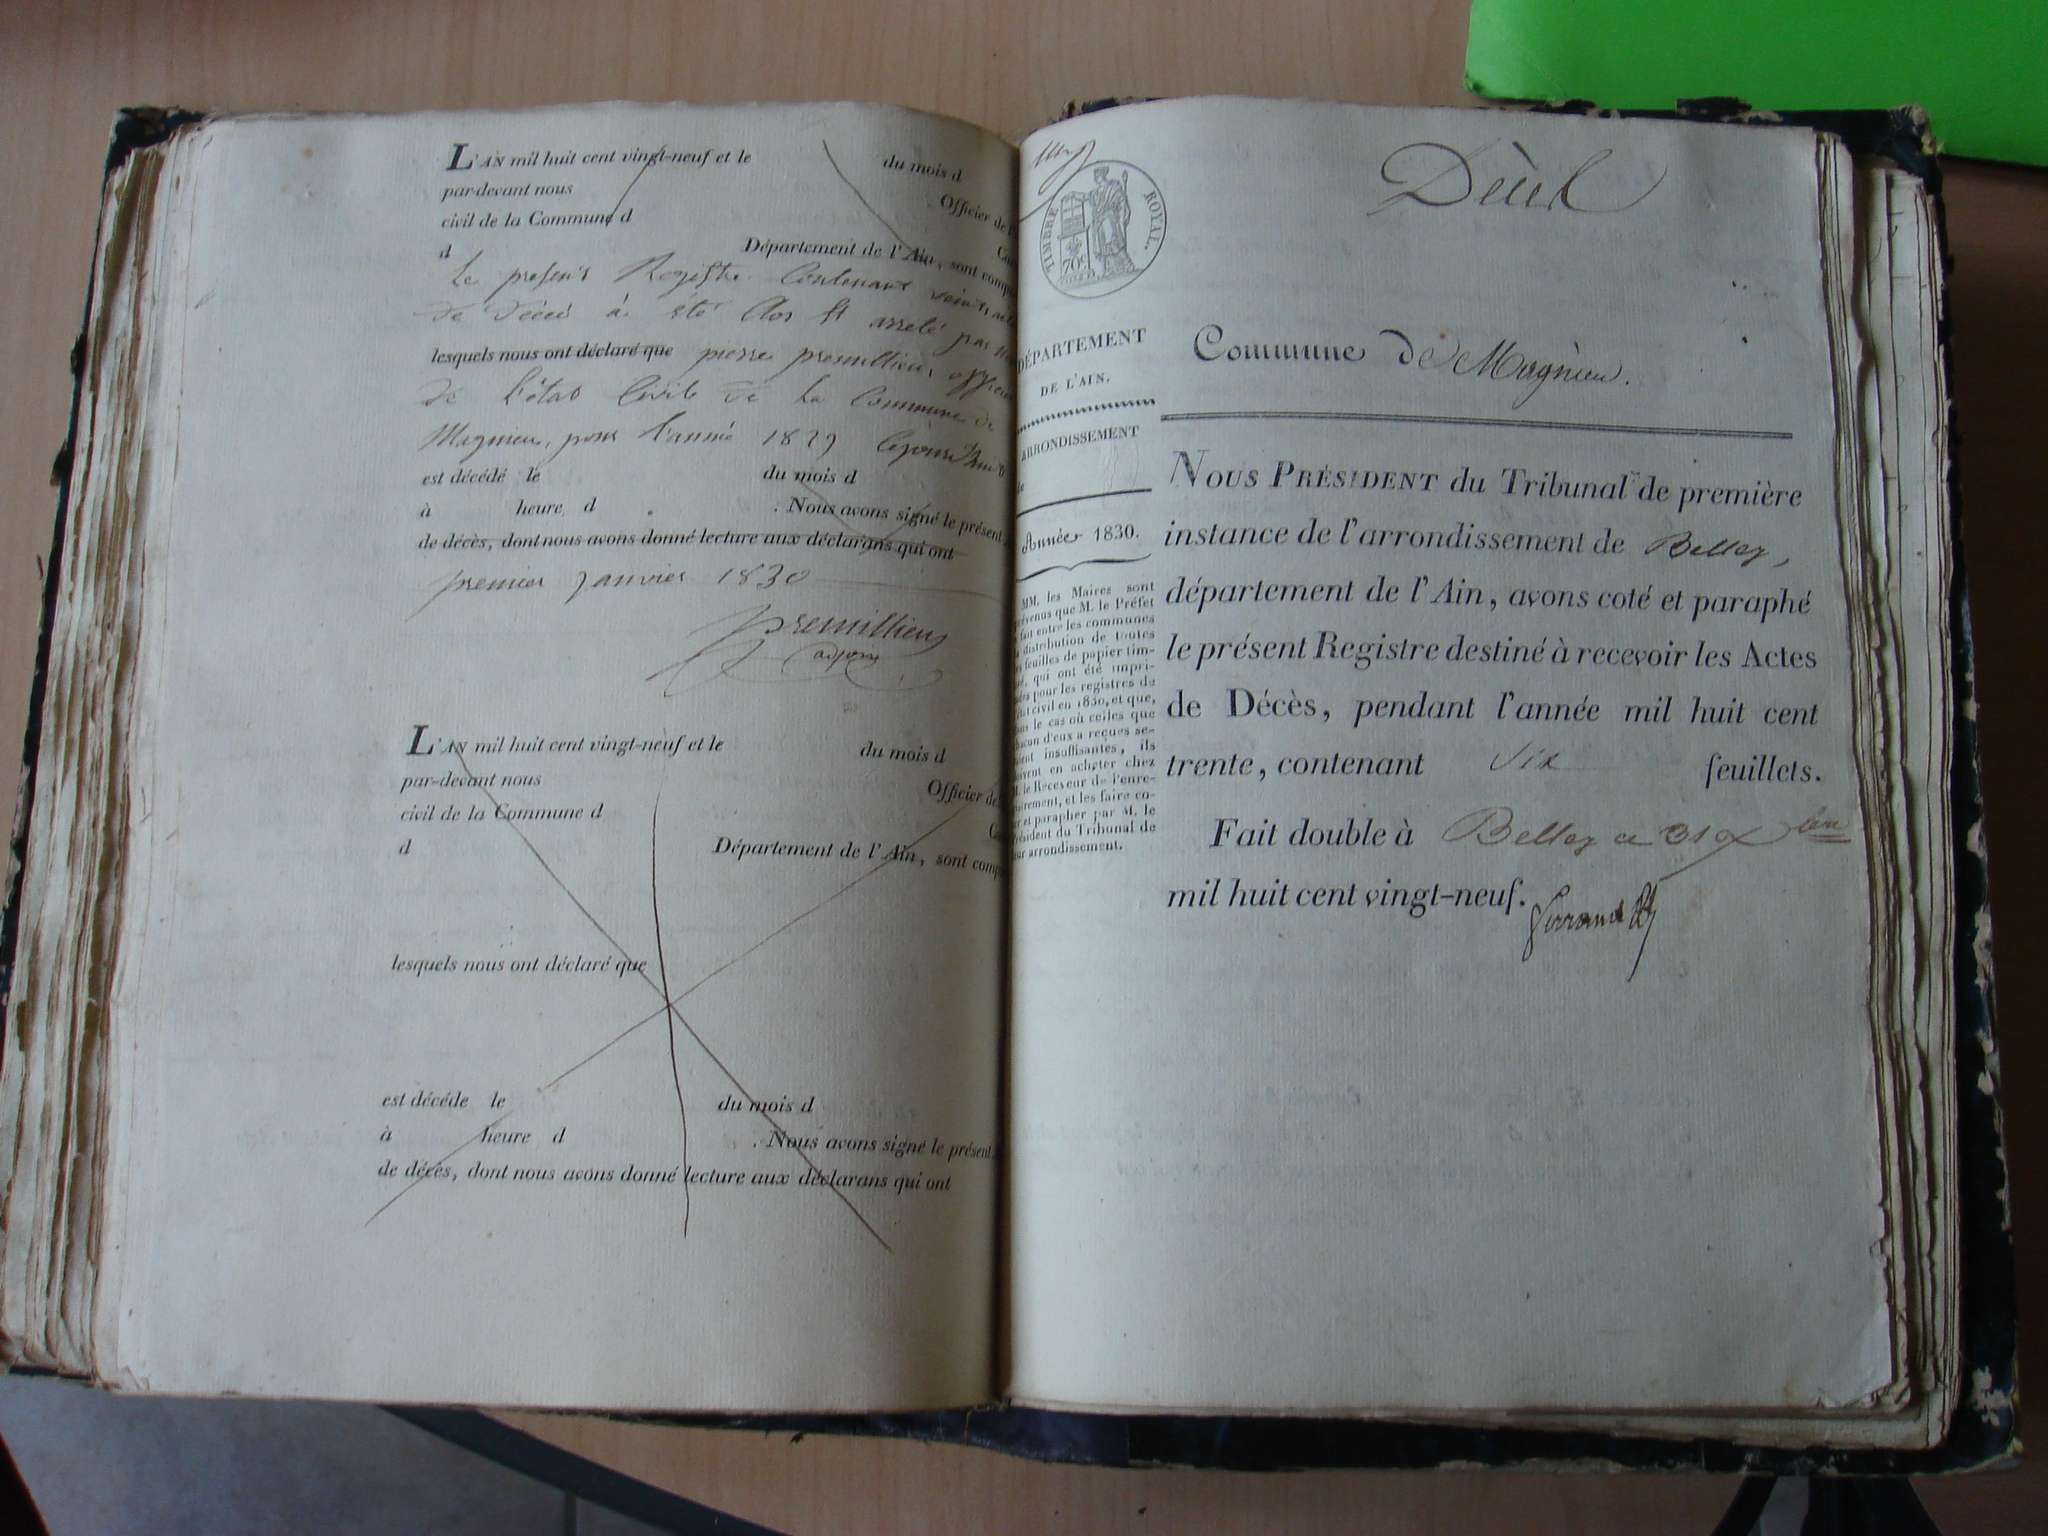 L'AN mil huit cent vingt-neuf et le du mois d
par-devant nous Officier de l'
civil de la Commune d
d Département de l'Ain, sont comp
Le present Registre Contenant vingt acte
de Décès à été Clos et arreté par
lesquels nous ont déclaré que pierre premillieu, officier
de l'état Civil de la Commune de
Magnieu, pour l'année 1829
est décédé le du mois d
à heure d . Nous avons signé le présent
de décès, dont nous avons donné lecture aux déclarans qui ont
premier janvier 1830
premillieu
adjoint
L'AN mil huit cent vingt-neuf et le du mois d
par-devant nous Officier de
civil de la Commune d
d Département de l'Ain, sont comp
lesquels nous ont déclaré que
est décéde le du mois d
à heure d . Nous avons signé le présent
de décès, dont nous avons donné lecture aux déclarans qui ont
TIMBRE ROYAL.
70c
DÉPARTEMENT
DE L'AIN.
ARRONDISSEMENT
de
Année 1830.
MM. les Maires sont
prévenus que M. le Préfet
fait entre les communes
la distribution de toutes
les feuilles de papier tim-
bré, qui ont été impri-
mées pour les registres de
l'état civil en 1830, et que,
dans le cas où celles que
chacun d'eux a reçues se-
raient insuffisantes, ils
doivent en acheter chez
M. le Receveur de l'enre-
gistrement, et les faire co-
ter et parapher par M. le
Président du Tribunal de
leur arrondissement.
Décès
Commune de Magnieu.
NOUS PRÉSIDENT du Tribunal de première
instance de l'arrondissement de Belley,
département de l'Ain, avons coté et paraphé
le présent Registre destiné à recevoir les Actes
de Décès, pendant l'année mil huit cent
trente, contenant six feuillets.
Fait double à Belley ce 31 Xbre
mil huit cent vingt-neuf.